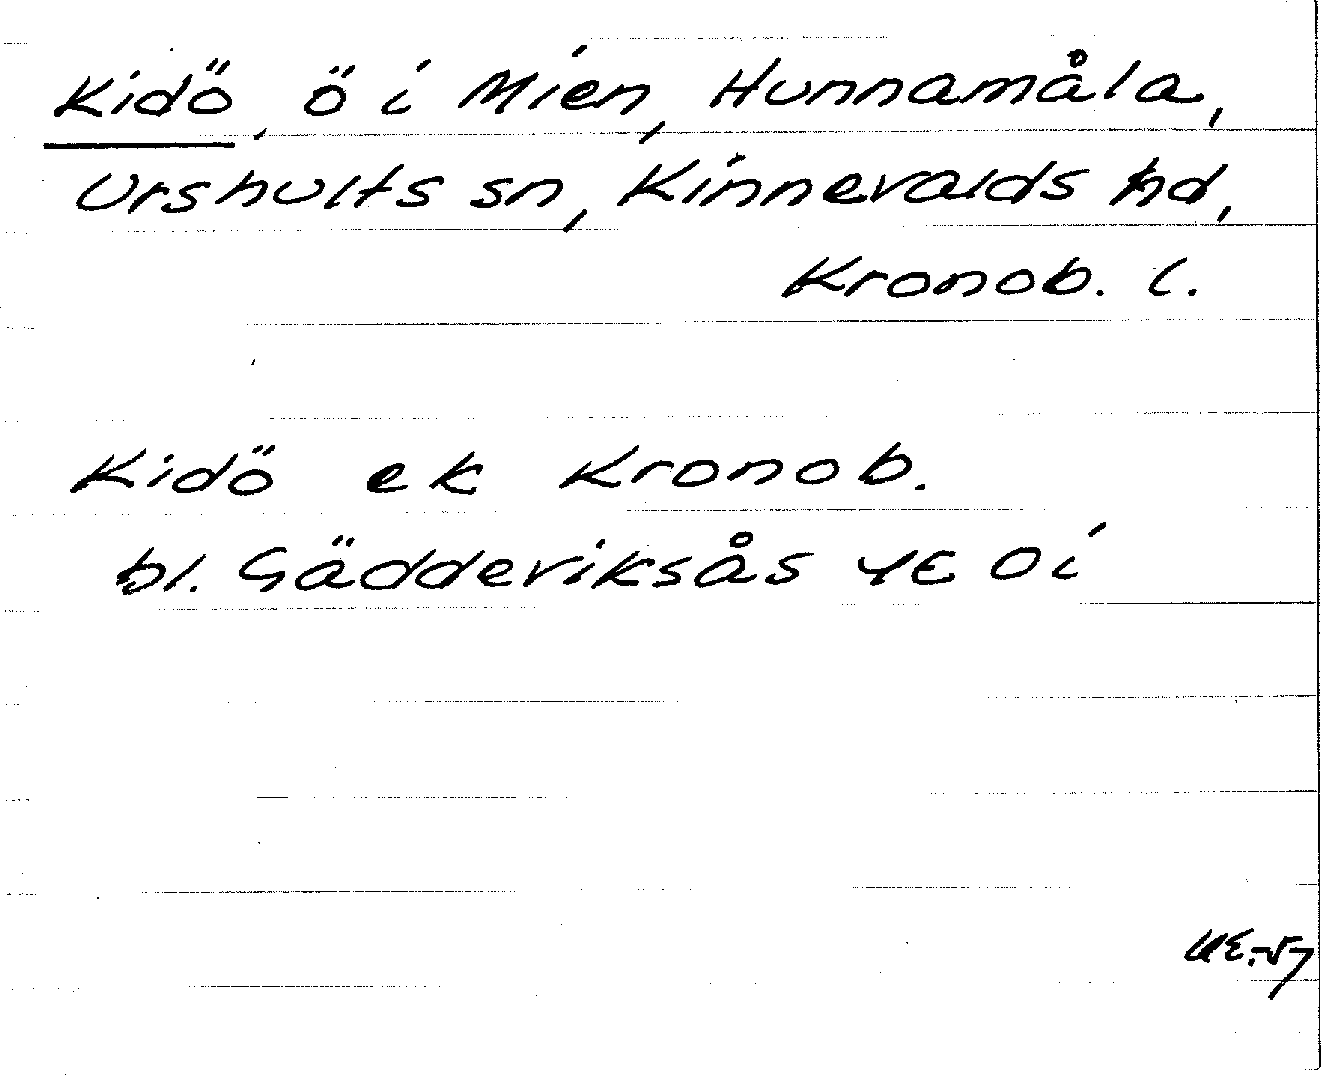 Kidö, ö i Mien, Hunnamåla,
Urshults sn, Kinnevalds hd,
Kronob. l.
Kidö ek Kronob.
bl. Gädderiksås 4E 0i
UE.-57